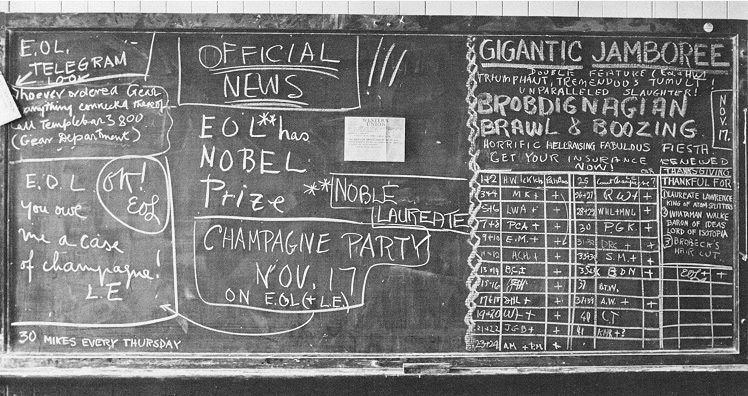 E.O.L.
TELEGRAM
LOOK
anything connected thereof
call Templebar 3800
(Gear Department)
E.O.L
you owe
me a case
of champagne!
L.E
OK!
EOL
30 MIKES EVERY THURSDAY
OFFICIAL
NEWS
EOL** has
NOBEL
Prize
**NOBLE
LAUREATE
CHAMPAGNE PARTY
NOV. 17
ON E.OL(+ L.E)
WESTERN
UNION
GIGANTIC JAMBOREE
DOUBLE FEATURE
TRIUMPHANT, TREMENDOUS TUMULT!
UNPARALLELED SLAUGHTER!
BROBDIGNAGIAN
BRAWL & BOOZING
HORRIFIC HELLRAISING FABULOUS FIESTA
GET YOUR INSURANCE RENEWED
NOW!
NOV.
17.
THANKSGIVING
THANKFUL FOR
LAUREATE LAWRENCE
KING OF ATOM SPLITTERS
BARON OF IDEAS
LORD OF ISOTOPIA
3 BROBECK'S
HAIR CUT.
1+2
3+4 M.K + +
5+6 LWA + + 28+29
7+8 PCA + + 30 P.G.K.
9+10 E.M. + +
11+12 + S.M. +
13+14 B.C. + B.D.N
15+16 37 B.T.W.
17+18 + + A.W. + +
19+20 W.L + + 40 C.T
21+22 J.G.B + 41
23+24 AM + +
EOL + +